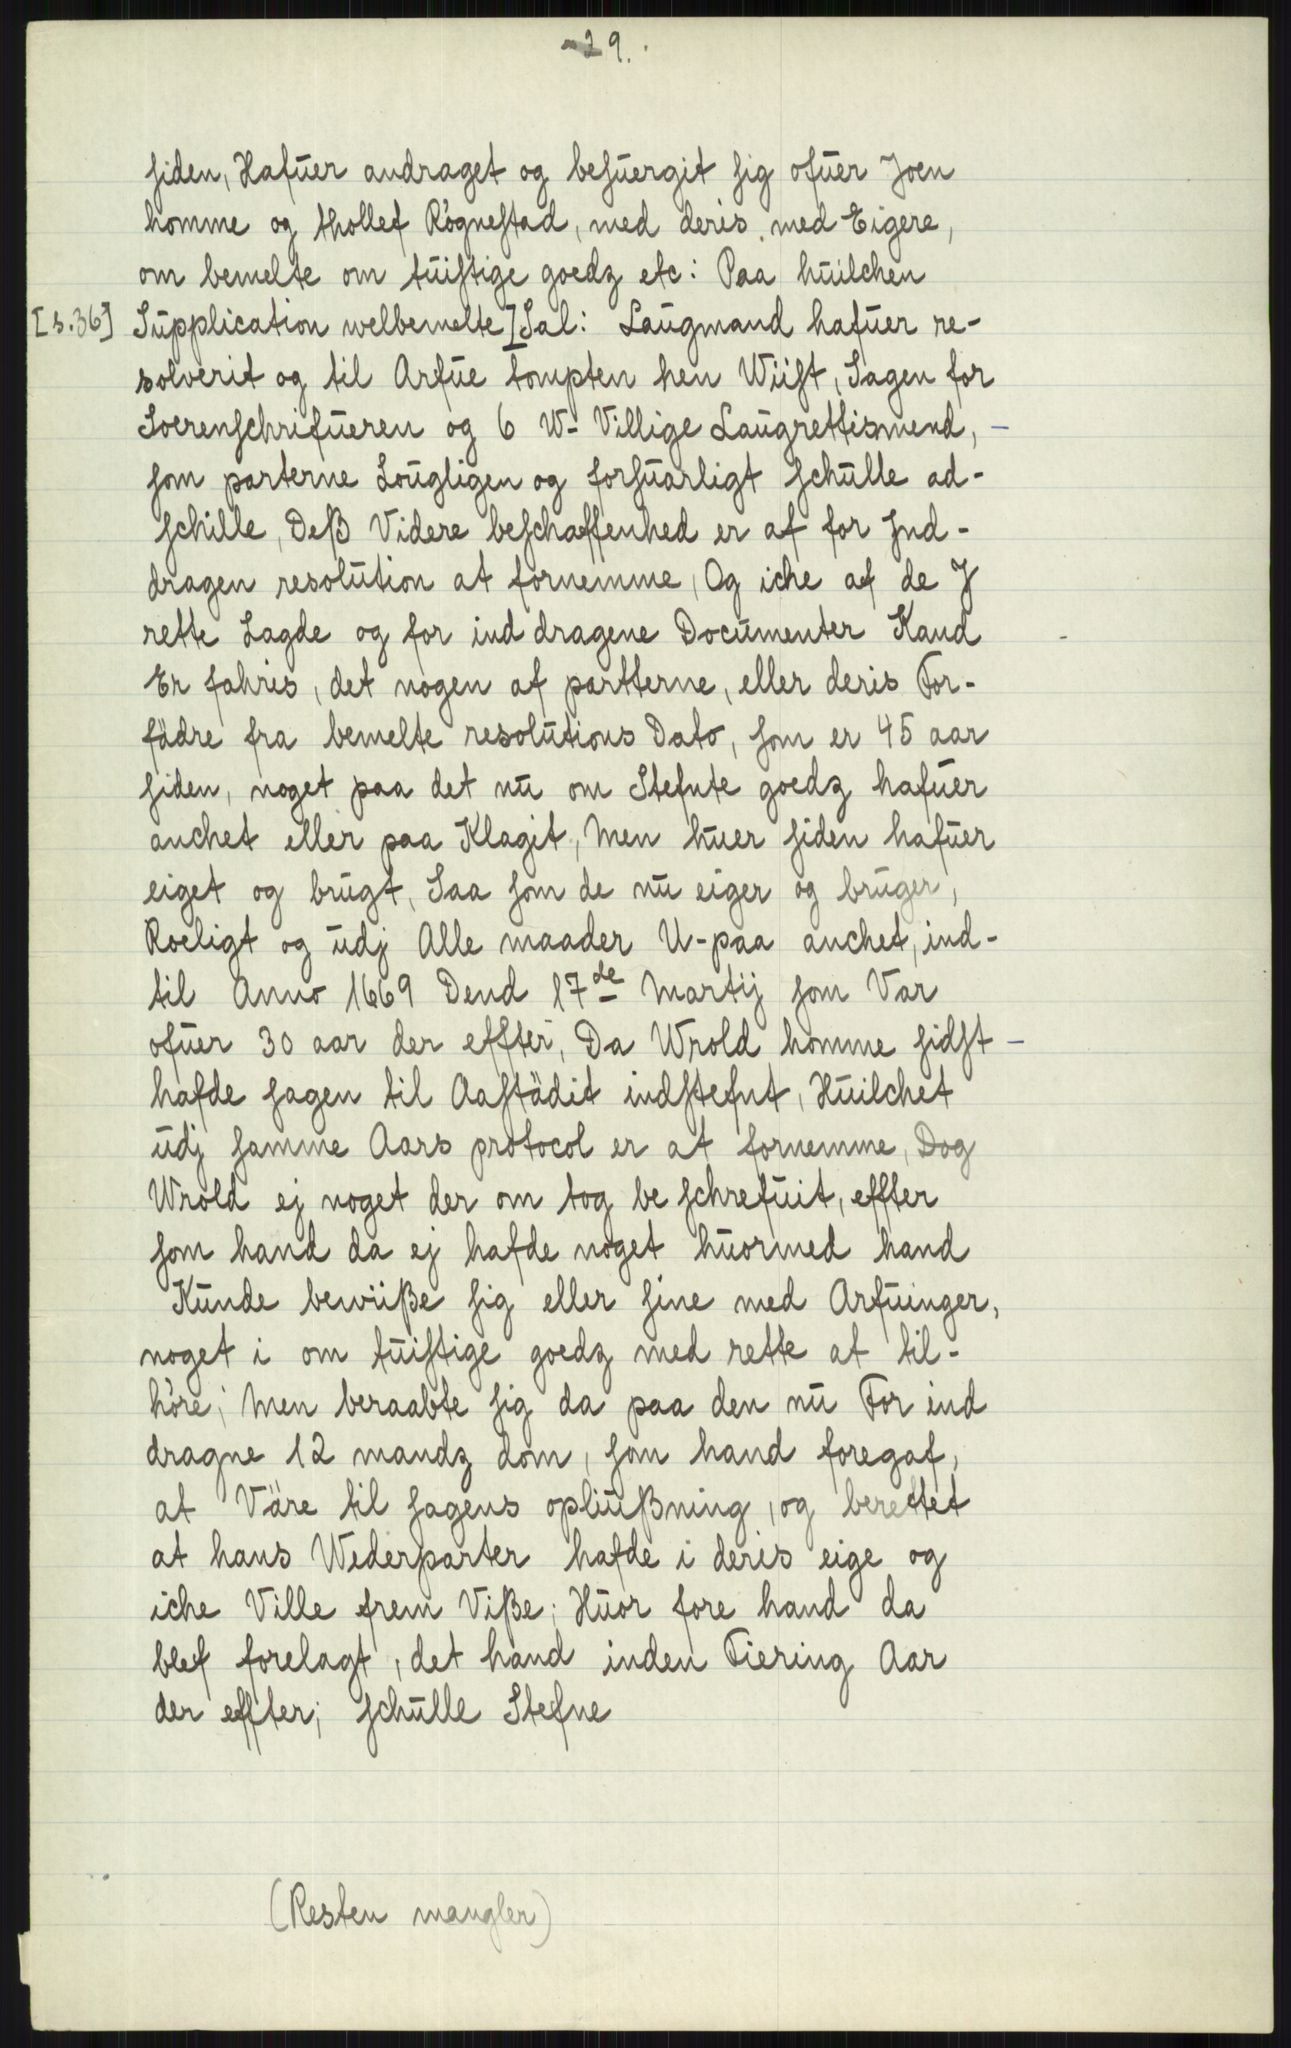 29.
siden, Hafuer andraget og besuergit sig ofuer Joen
homme og thollef Rögnestad, med deris med Eigere,
om bemelte om tuistige goedz etc: Paa huilchen
[s.36] Supplication welbemelte] Sal: Laugmand hafuer re-
solverit og til Arfue tompten hen Wiist, Sagen for
Soerenschrifueren og 6 W- Villige Laugrettismend,
som parterne Lougligen og forsuarligt schulle ad-
schille, Deß Videre beschaffenhed er af for Ind-
dragen resolution at fornemme, Og iche af de J
rette Lagde og for ind dragene Documenter Kand
Er fahris, det nogen af partterne, eller deris For-
fädre fra bemelte resolutions Dato, som er 45 aar
siden, noget paa det nu om Stefnte goedz hafuer
anchet eller paa Klagit, Men huer siden hafuer
eiget og brugt, Saa som de nu eiger og bruger,
Roeligt og udj Alle maader U-paa anchet, ind-
til Anno 1669 Dend 17de Martij som Var
ofuer 30 aar der effter, Da Wrold homme sidst
hafde sagen til Aastädit indstefnt, Huilchet
udj samme Aars protocol er at fornemme, Dog
Wrold ej noget der om tog be schrefuit, effter
som hand da ej hafde noget huormed hand
Kunde bewiiße sig eller sine med Arfuinger,
noget i om tuistige goedz med rette at til-
höre; Men beraabte sig da paa den nu For ind
dragne 12 mandz dom, som hand foregaf,
at Väre til sagens opliußning, og berettet
at hans Wederparter hafde i deris eige og
iche Ville frem Viße; Huor fore hand da
blef forelagt, det hand inden Fiering Aar
der effter; schulle Stefne
(Resten mangler)